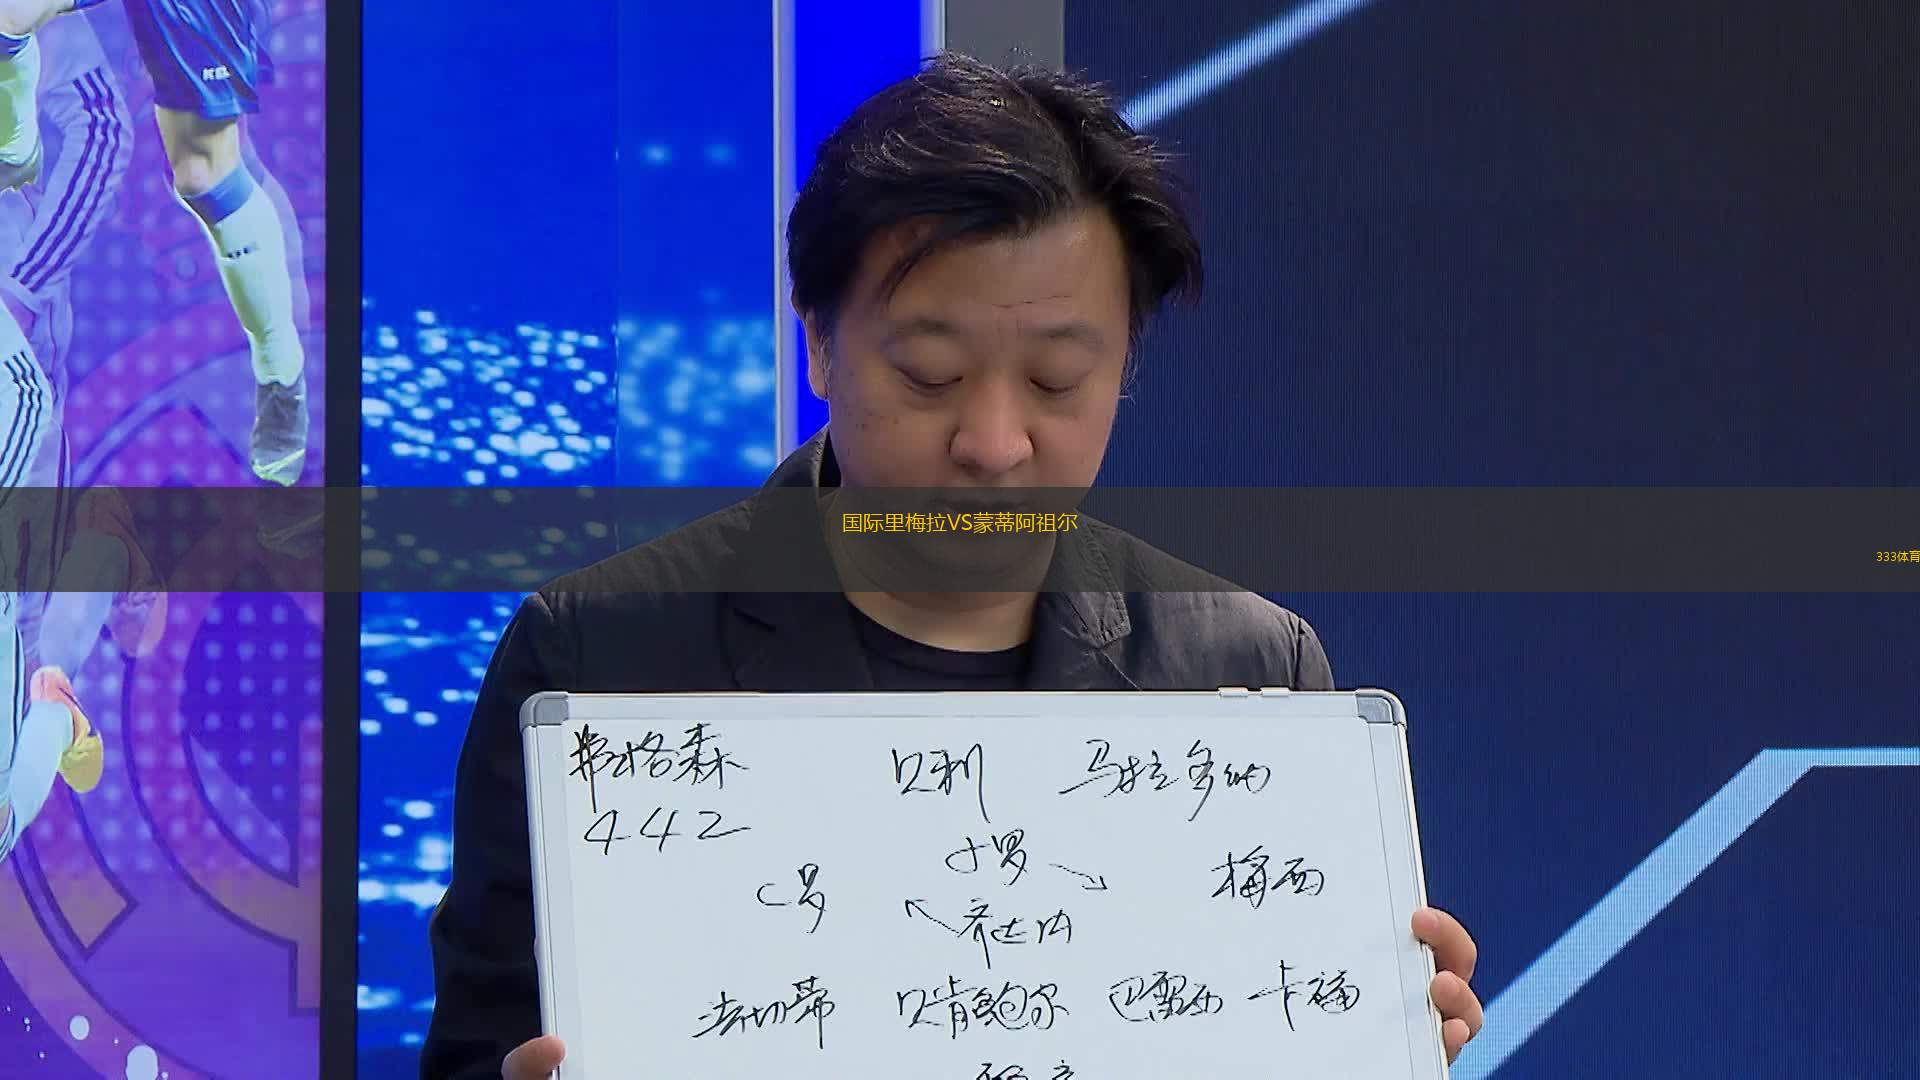 国际里梅拉VS蒙蒂阿祖尔
333体育
弗格森 贝利 马拉多纳
442
小罗
C罗 梅西
齐达内
法切蒂 贝肯鲍尔 巴雷西 卡福